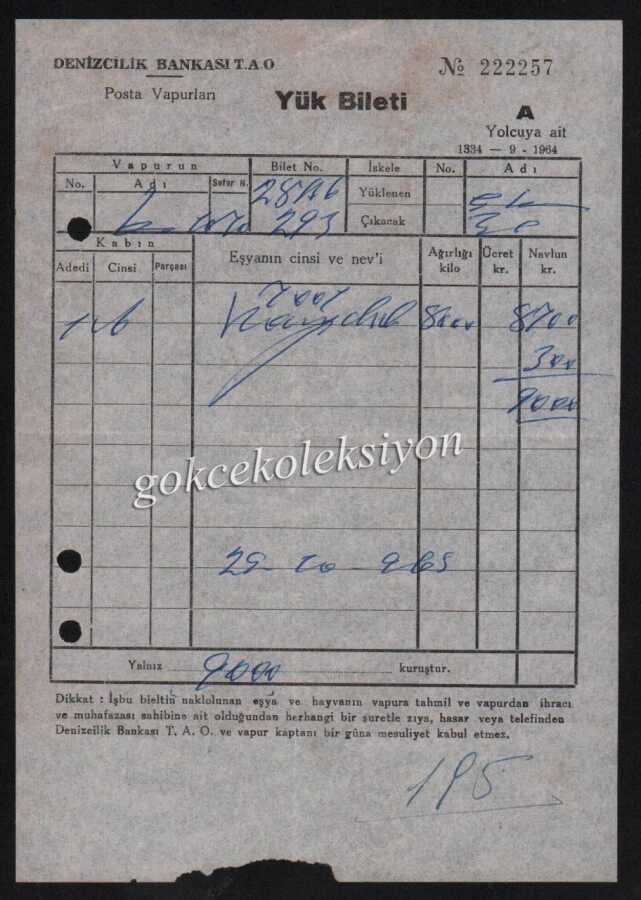 DENİZCİLİK BANKASI T.A.O.
Posta Vapurları
Yük Bileti
№ 222257
A
Yolcuya ait
1334 — 9 - 1964
Vapurun Bilet No. İskele No. Adı
No. Adı Sefer N. Yüklenen
293 Çıkacak
Kabin Eşyanın cinsi ve nev'i Ağırlığı kilo Ücret kr. Navlun kr.
Adedi Cinsi Parçası
8000 8700
300
9000
gokcekoleksiyon
Yalnız 9000 kuruştur.
Dikkat : İşbu bieltin naklolunan eşya ve hayvanın vapura tahmil ve vapurdan ihracı
ve muhafazası sahibine ait olduğundan herhangi bir suretle zıya, hasar veya telefinden
Denizcilik Bankası T. A. O. ve vapur kaptanı bir gûna mesuliyet kabul etmez.
195